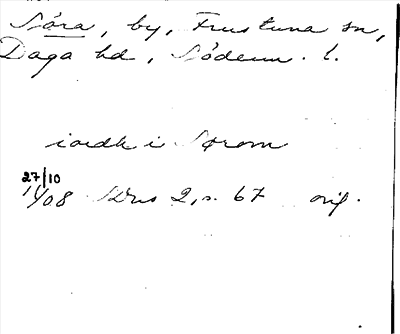 Nöra, by, Frustuna sn,
Daga hd, Söderm. l.
iordh i Nørom
27/10
1408 SDns 2, s. 67 orig.